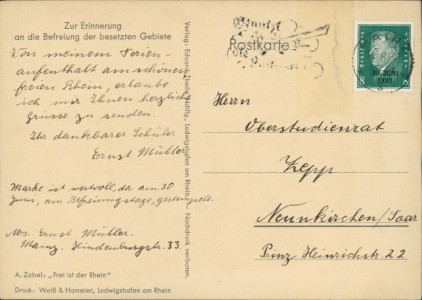 Zur Erinnerung
an die Befreiung der besetzten Gebiete
Von meinem Ferien-
aufenthalt am schönen
freien Rhein, erlaube
ich mir Ihnen herzliche
Grüsse zu senden.
Ihr dankbarer Schüler
Ernst Müller
Marke ist wertvoll, da am 30
Juni, am Befreiungstage, gestempelt.
Abs. Ernst Müller.
Mainz. Hindenburgstr. 33
A. Zobel: „Frei ist der Rhein"
Druck: Weiß & Hameier, Ludwigshafen am Rhein
Ludwigshafen am Rhein. Nachdruck verboten.
Postkarte
30. JUNI
1930
8
8
Herrn
Oberstudienrat
Zepp
Neunkirchen/Saar
Prinz Heinrichstr. 22